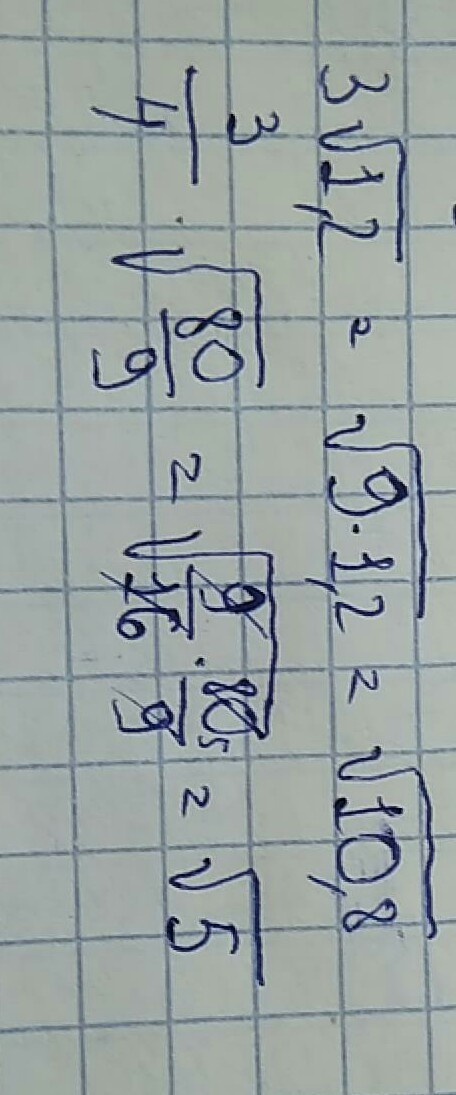 3√1,2 = √9·1,2 = √10,8
3/4 · √80/9 = √9/16 · 80/9 5 = √5